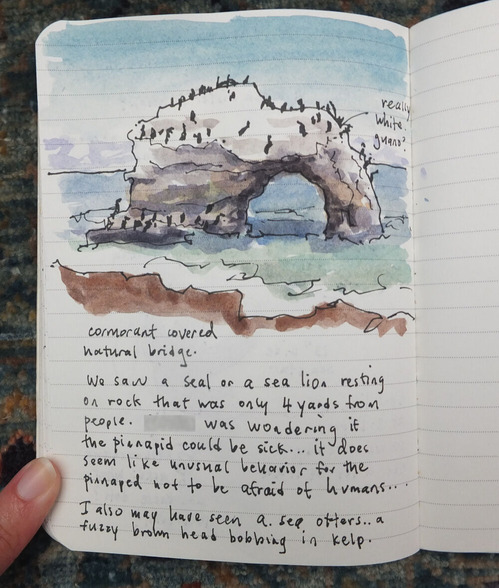 really
white.
guano?
cormorant covered
natural bridge.
We saw a seal or a sea lion resting
on rock that was only 4 yards from
people. was wondering if
the pinnapid could be sick... it does
seem like unusual behavior for the
pinnaped not to be afraid of humans...
I also may have seen a sea otters.. a
fuzzy brown head bobbing in kelp.